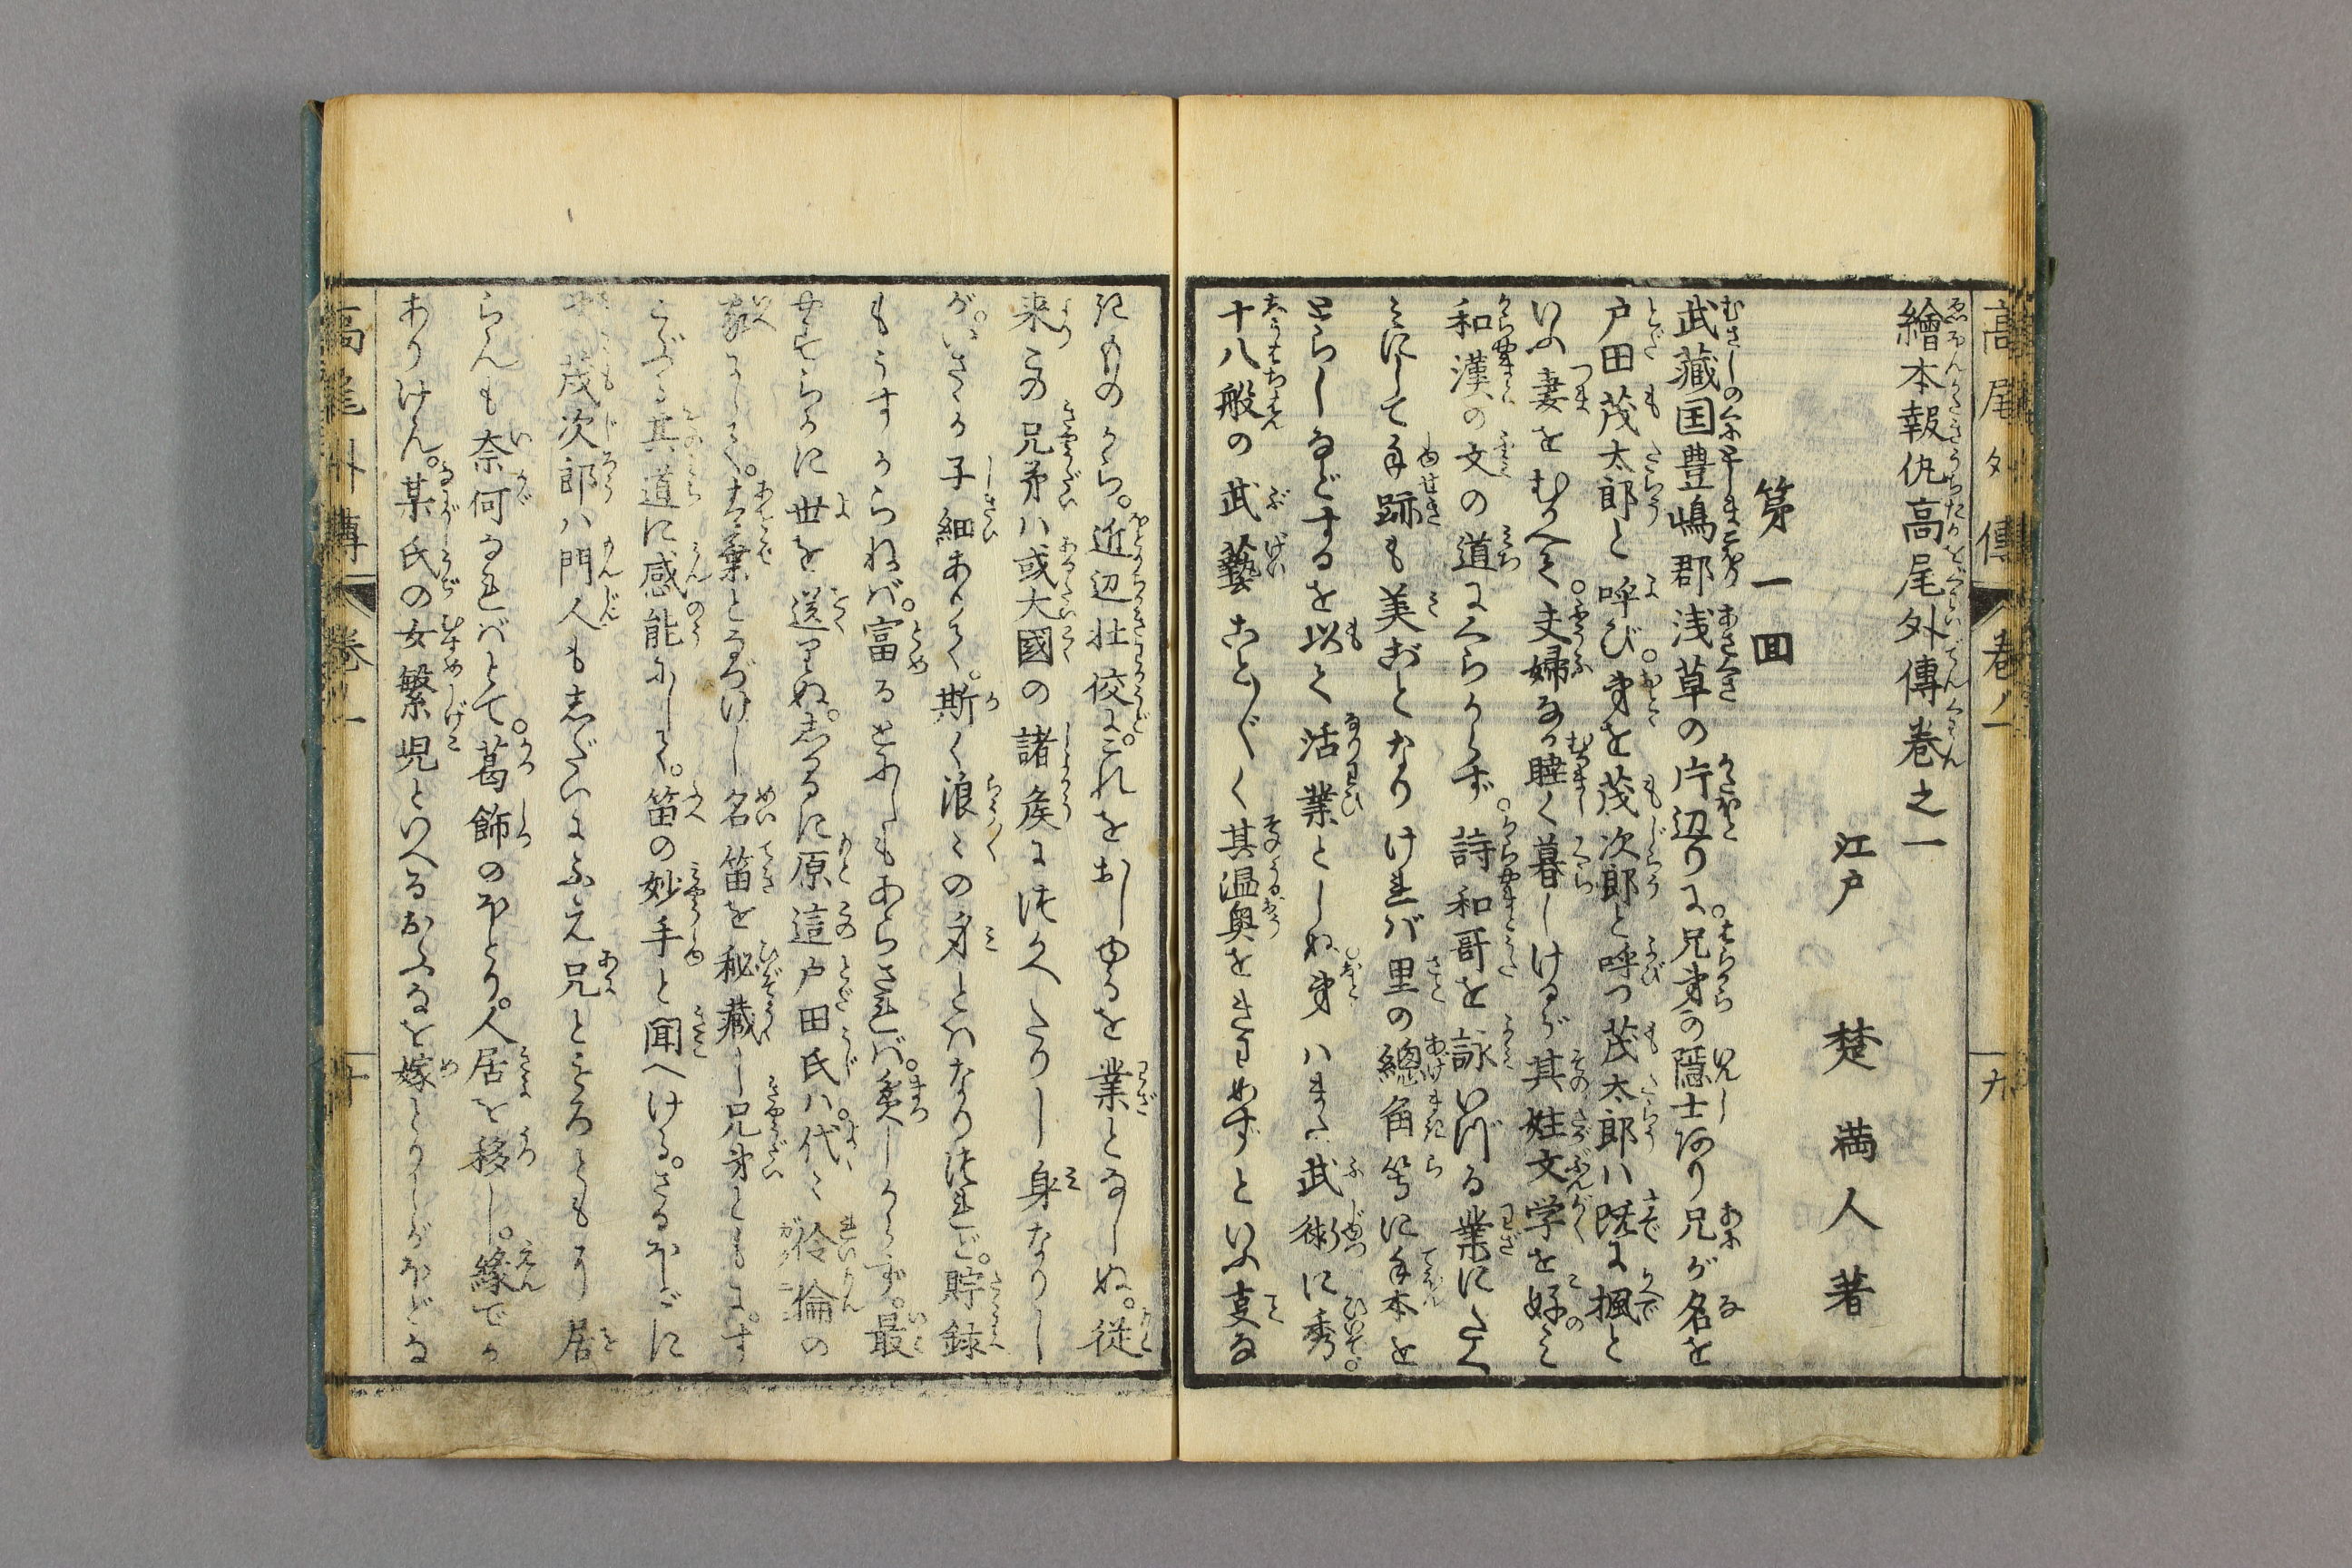 高尾外傳 巻ノ一 九
繪本報仇高尾外傳巻之一
江戸 楚満人著
第一回
武藏国豊嶋郡浅草の片辺りに。兄弟の隠士あり兄が名を
戸田茂太郎と呼び。弟を茂次郎と呼つ茂太郎ハ既に楓と
いふ妻をむかへて。夫婦なか睦く暮しけるが其姓文学を好み
和漢の文の道にくらからず。詩和哥を詠いづる業にたへ
みにして手跡も美ごとなりけれバ里の總角等に手本を
とらしなどするを以て活業としぬ弟ハまた武術に秀。
十八般の武藝ことごとく其温奥をきわめずといふ支な
きものから。近辺壮佼に。これをおしゆるを業となしぬ。従
来この兄弟ハ或大國の諸矦につかへたりし身なりし
が。いさゝか子細ありて。斯く浪々の身とハなりつれど。貯録
もうすからねバ。富るとにしもあらされバ。貧しからず。最
安らかに世を送りぬ。しかるに原這戸田氏ハ代々伶倫の
家にして。青葉となづけし名笛を秘藏し兄弟ともに。す
こぶる其道に感能にして。笛の妙手と聞へける。さるほどに
茂次郎ハ門人も志だいにふえ兄とところともに居
らんも奈何なれバとて。葛飾のほとり。人居を移し。縁でか
ありけん。某氏の女繁児といへるおふなを嫁とりしがほどな
高尾外傳 巻ノ一 十